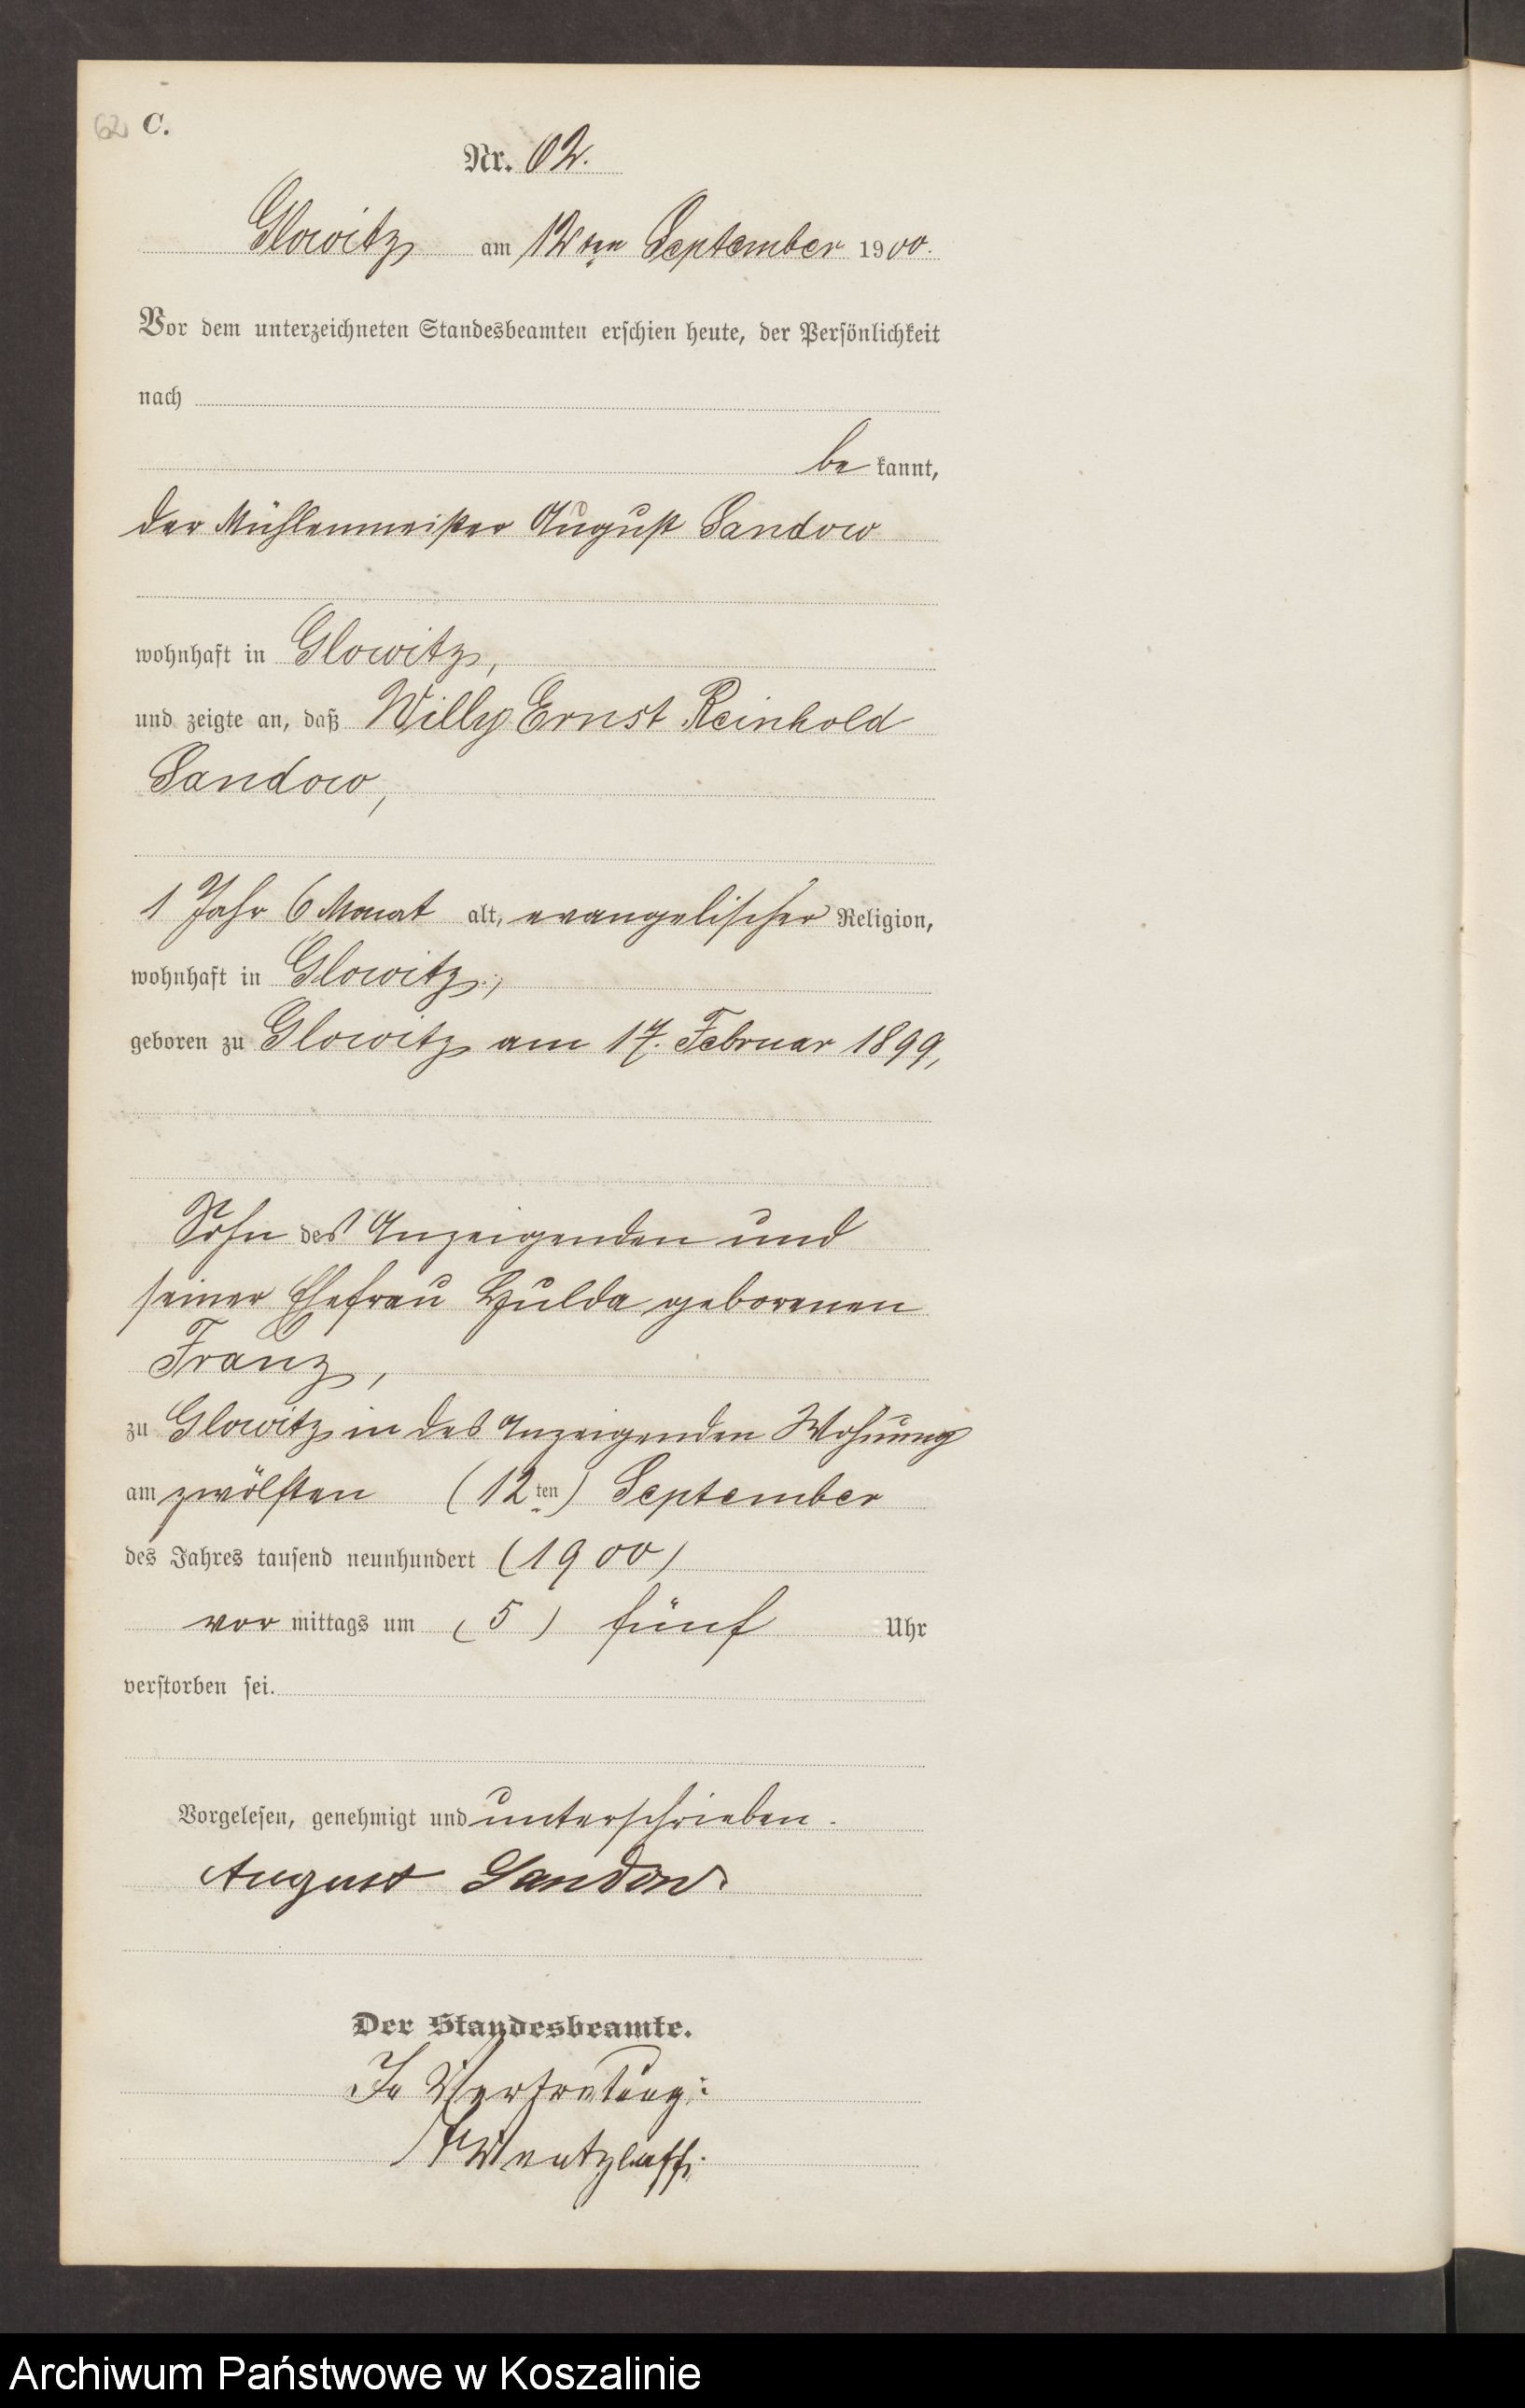 62 C.
Nr. 62.
Glowitz am 12ten September 1900.
Vor dem unterzeichneten Standesbeamten erschien heute, der Persönlichkeit
nach
be kannt,
der Mühlenmeister August Sandow
wohnhaft in Glowitz,
und zeigte an, daß Willy Ernst Reinhold
Sandow,
1 Jahr 6 Monat alt, evangelischer Religion,
wohnhaft in Glowitz,
geboren zu Glowitz am 17. Februar 1899,
Sohn des Anzeigenden und
seiner Ehefrau Hulda geborenen
Franz,
zu Glowitz in des Anzeigenden Wohnung
am zwölften (12ten) September
des Jahres tausend neunhundert (1900)
vor mittags um (5) fünf Uhr
verstorben sei.
Vorgelesen, genehmigt und unterschrieben.
August Sandow.
Der Standesbeamte.
In Vertretung:
Wentzlaff.
Archiwum Państwowe w Koszalinie